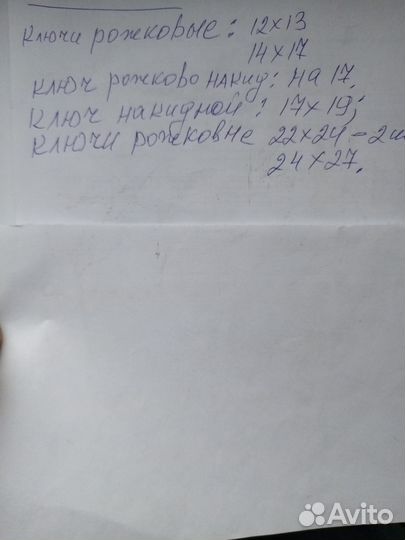 Ключи рожковые: 12х13
14х17
Ключ рожково накид: на 17.
Ключ накидной: 17х19;
Ключи рожковые 22х24 - 2ш
24х27.
Avito